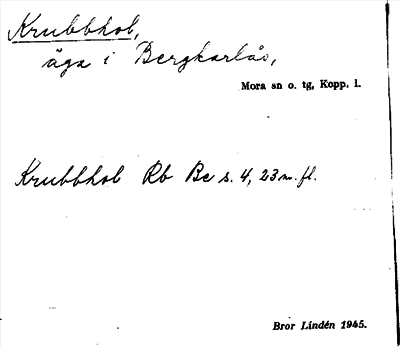 Krubbhol,
äga i Bergkarlås,
Mora sn o. tg, Kopp. l.
Krubbhol Rb Be s. 4, 23 m. fl.
Bror Lindén 1945.